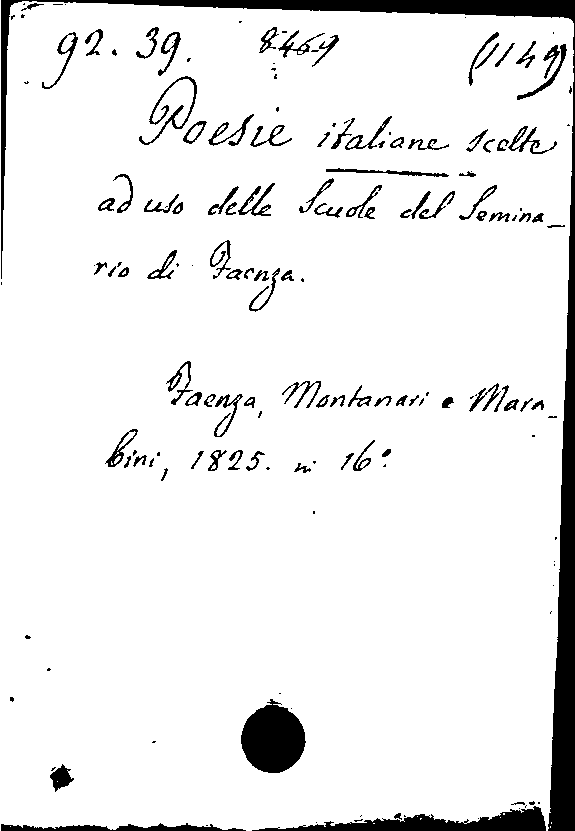 92. 39. 8469 (1149)
Poesie italiane scelte
ad uso delle Scuole del Semina_
rio di Faenza.
Faenza, Montanari e Mara_
bini, 1825. in 16°.